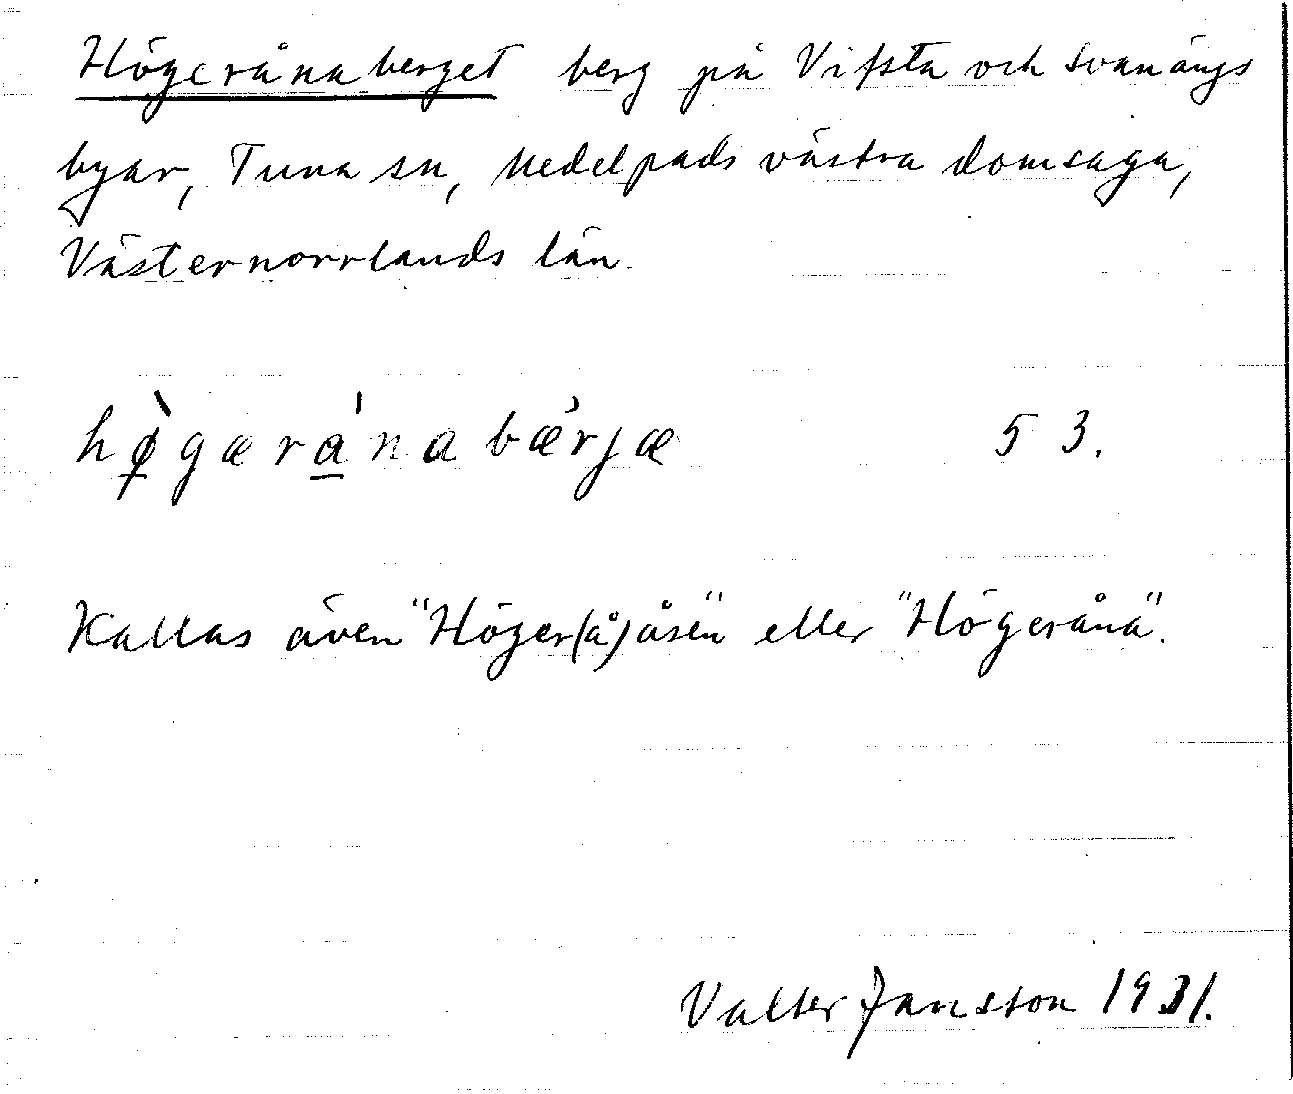 Högerånaberget berg på Vifsta och Svanängs
byar, Tuna sn, Medelpads västra domsaga,
Västernorrlands län.
hø̀gærána bǽrjæ 53.
Kallas även "Höger(å)åsen" eller "Högeråna".
Valter Jansson 1931.